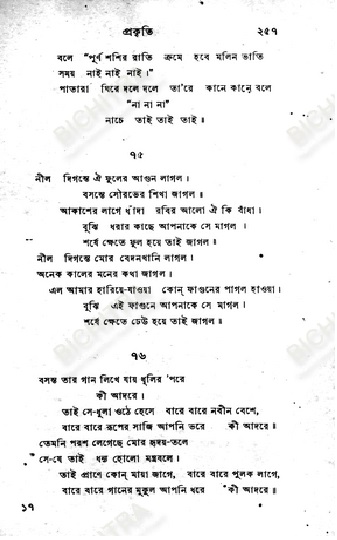 প্রকৃতি ২৫৭
বলে "পূর্ণ শশীর রাতি ক্রমে হবে মলিন ভাতি
সময় নাই নাই নাই।"
পাতারা ঘিরে দলে দলে তা'রে কানে কানে বলে
"না না না"
নাচে তাই তাই তাই।
৭৫
নীল দিগন্তে ঐ ফুলের আগুন লাগল।
বসন্তে সৌরভের শিখা জাগল॥
আকাশের লাগে ধাঁদা রবির আলো ঐ কি বাঁধা।
বুঝি ধরার কাছে আপনাকে সে মাগল।
শর্ষে ক্ষেতে ফুল হয়ে তাই জাগল॥
নীল দিগন্তে মোর বেদনখানি লাগল।
অনেক কালের মনের কথা জাগল।
এল আমার হারিয়ে-যাওয়া কোন্ ফাগুনের পাগল হাওয়া।
বুঝি এই ফাগুনে আপনাকে সে মাগল।
শর্ষে ক্ষেতে ঢেউ হয়ে তাই জাগল॥
৭৬
বসন্ত তার গান লিখে যায় ধূলির 'পরে
কী আদরে॥
তাই সে-ধূলা ওঠে হেসে বারে বারে নবীন বেশে,
বারে বারে রূপের সাজি আপনি ভরে কী আদরে॥
তেমনি পরশ লেগেছে মোর হৃদয়-তলে
সে-যে তাই ধন্য হোলো মন্ত্রবলে।
তাই প্রাণে কোন্ মায়া জাগে, বারে বারে পুলক লাগে,
বারে বারে গানের মুকুল আপনি ধরে কী আদরে॥
১৭